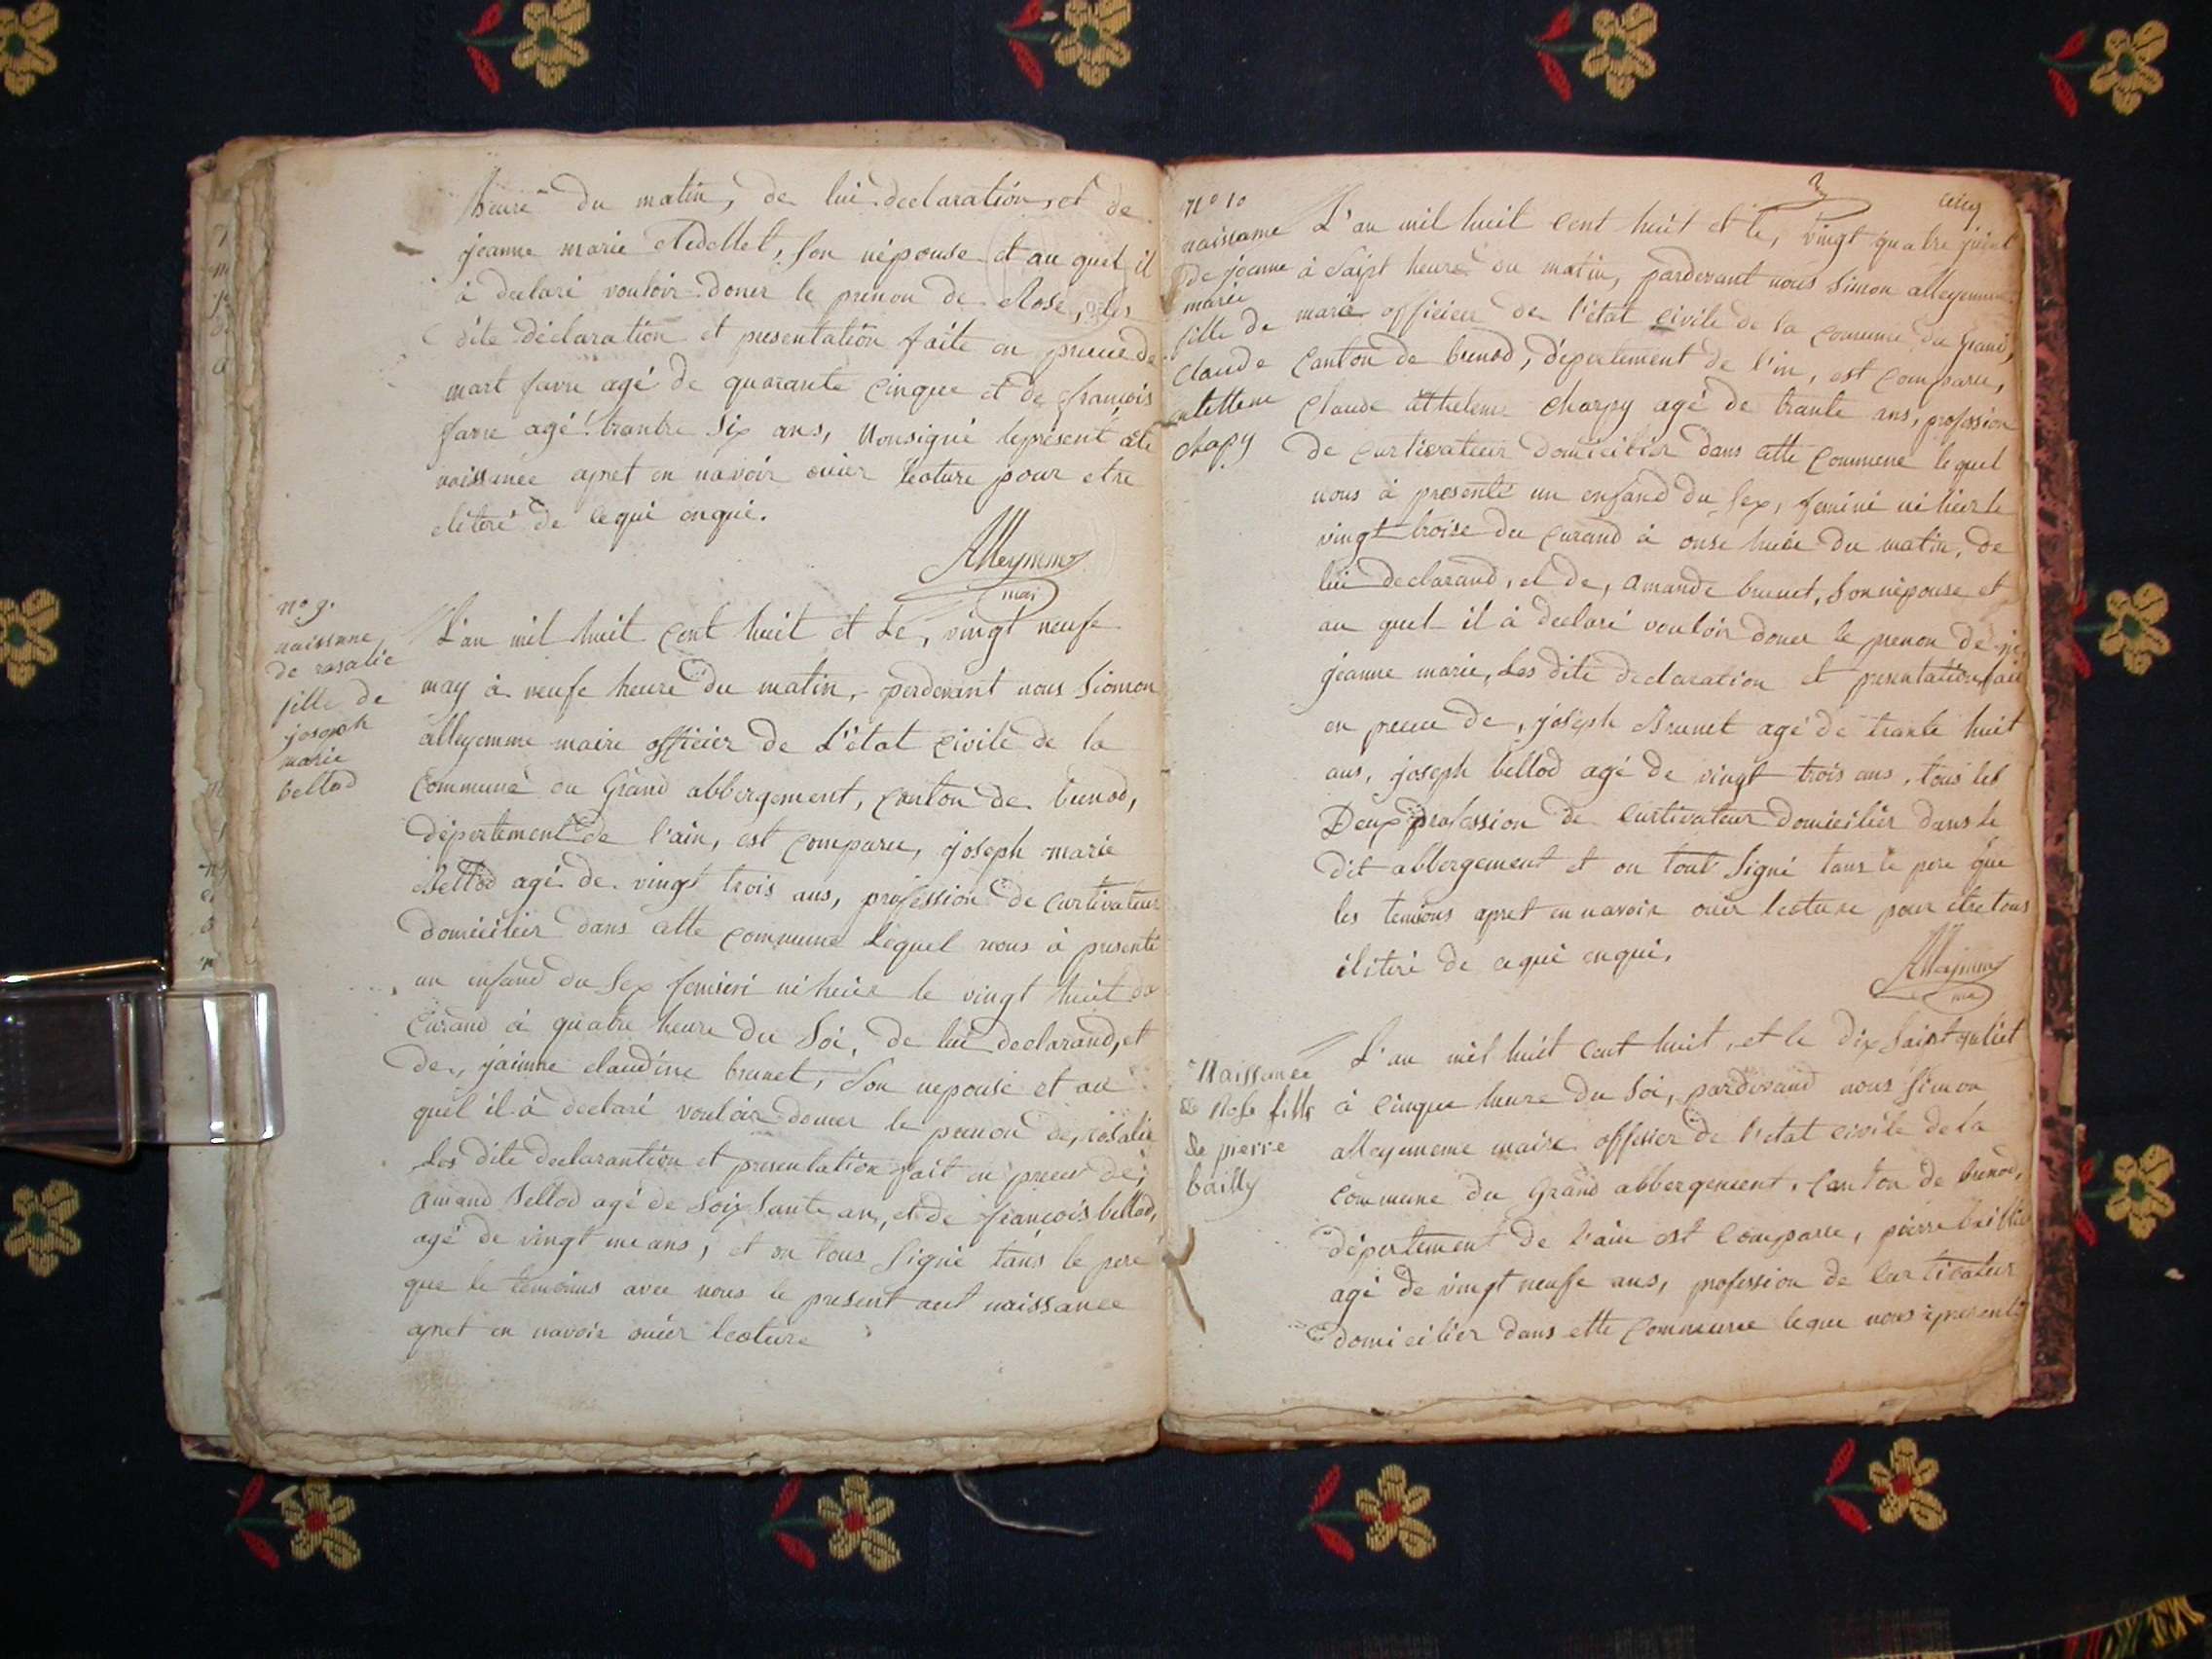 heure du matin, de lui declaration, et de
jeanne marie, son népouse et au quel il
à declaré vouloir doner le prenon de Rose, les
dite déclaration et presentation faite en preuce de
mart favre agé de quarante cinque et de françois
favre agé trantre six ans, Nonsigné leprésent acte
naissance apret en navoir ouier lecture pour etre
eliteré de cequi enqui.
Alleymme
mai
no 9.
naissane
de rosalie
fille de
joseph
marie
bellod
L'an mil huit cent huit et le, vingt neufe
may à neufe heure du matin, perdevant nous Siomon
alleyemme maire officier de L'état civile de la
Commune du Grand abbergement, canton de brenod,
département de l'ain, est comparu, joseph marie
Bellod agé de vingt trois ans, profession de curtivateur
domicilier dans cette commune lequel nous à presenté
un enfand du sex feminin ni hier le vingt huit du
Curand à quatre heure du Soi, de lui declarand, et
de, jeanne claudine brunet, Son nepouse et au
quel il à declaré vouloir donner le prenon de, rosalie
Les dite declarantion et presentation fait en preuce de,
amand Bellod agé de soixsante an, et de françois bellod,
agé de vingt un ans, et on tous signé tans le pere
que le temoins avec nous le present act naissance
apret en navoir ouier lecture
cinq
no 10
naissanne
de jeanne
marie
fille de
claude
antelleme
chapy
L'an mil huit cent huit et le, vingt quatre juint
à saipt heure du matin, pardevant nous Simon alleyemme
marie officier de l'état civile de la commune du grand,
canton de brenod, département de l'in, est comparu,
Claude antheleme charpy agé de trante ans, profession
de curtivateur domicilier dans cette commune lequel
nous à presenté un enfand du sex, feminin ni hier le
vingt troise du curand à onse heure du matin, de
lui declarand, et de, amande brunet, son népouse et
au quel il à declaré vouloir doner le prenon de
jeanne marie, Les dite declaration et presentation fait
en preuce de, joseph Brunet agé de trante huit
ans, joseph bellod agé de vingt trois ans, tous les
Deux profession de curtivateur domicilier dans le
dit abbergement et on tout signé tans le pere que
les temions apret en navoir ouir lecture pour etre tous
éliteré de cequi enqui,
Alleymme
mai
Naissance
de Rose fille
de pierre
bailly
L'an mil huit cent huit, et le dix saipt juliet
à cinque heure du soi, pardevand nous simon
alleyememe maire offisier de l'etat civile de la
commune du Grand abbergement, Canton de brenod,
département de l'ain est comparu, pierre baillie
agé de vingt neufe ans, profession de curtivateur
domicilier dans cette commune leque nous à presenté